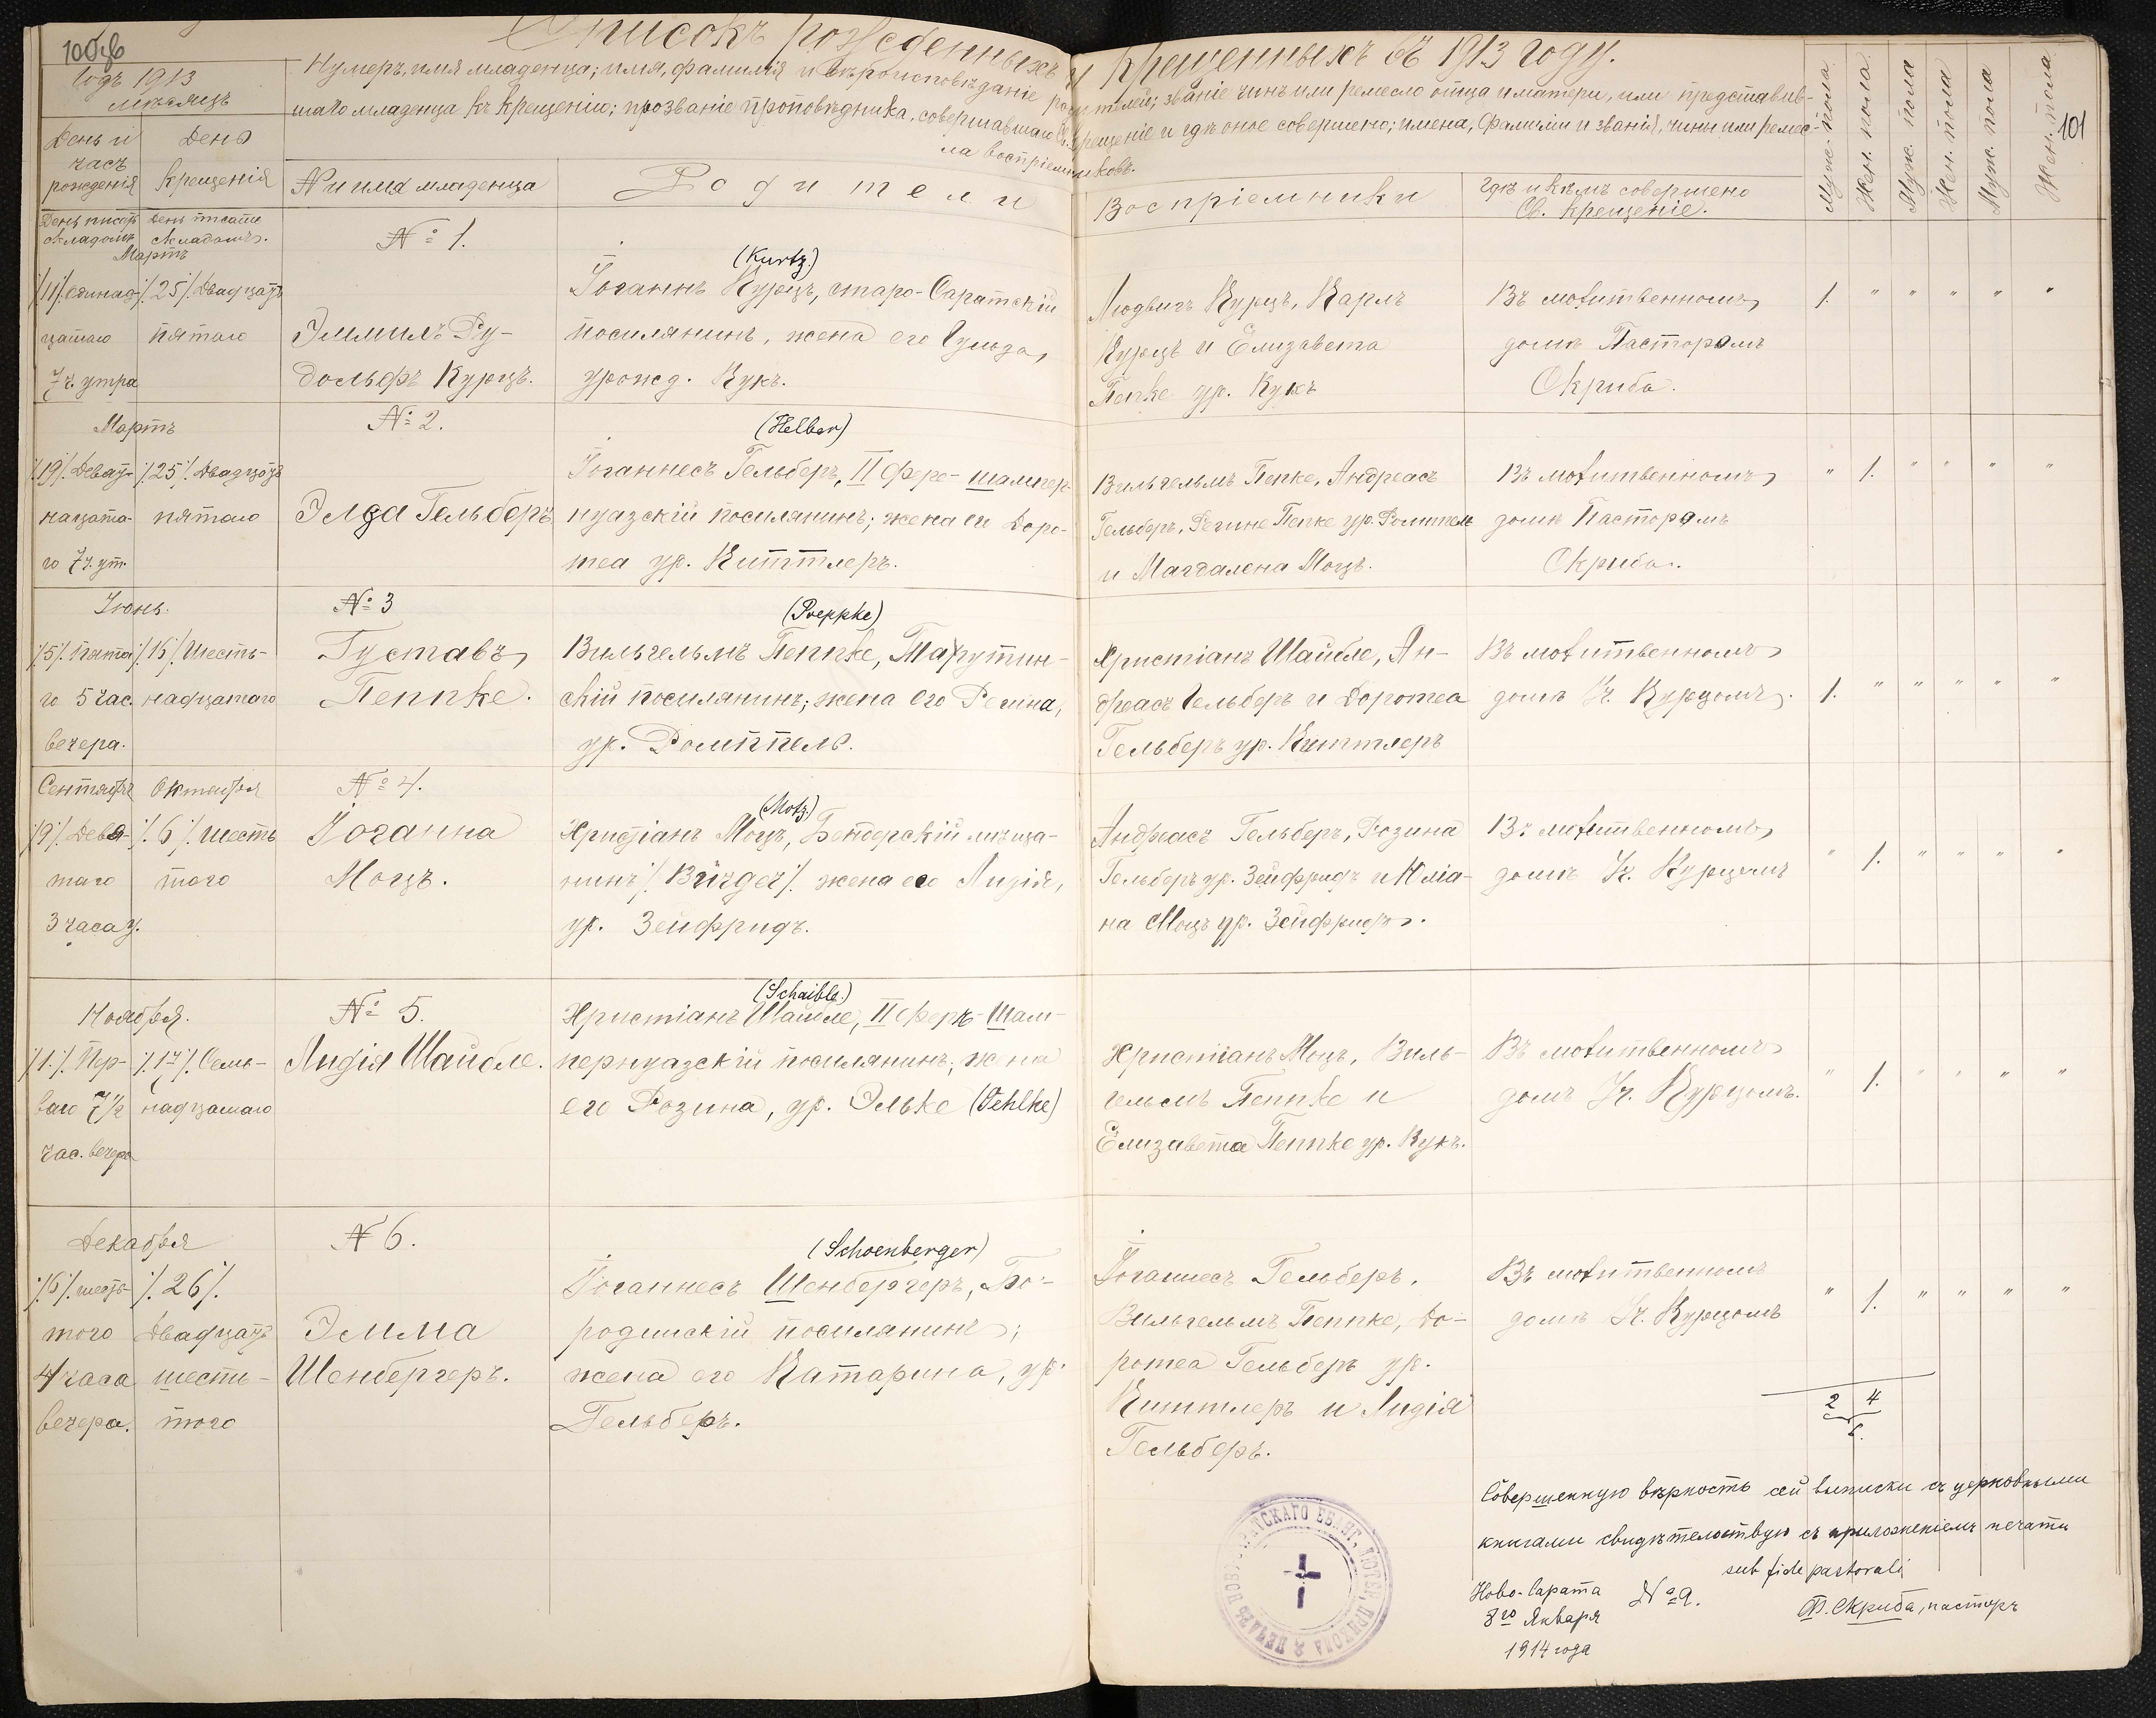 100об
101
Списокъ рожденныхъ и крещенныхъ въ 1913 году.
Годъ 1913
мѣсяцъ
Нумеръ, имя младенца; имя, фамилія и вѣроисповѣданіе родителей; званіе чинъ или ремесло отца и матери, или представив-
шаго младенца къ крещенію; прозваніе проповѣдника, совершавшаго Св. крещеніе и гдѣ оное совершено; имена, фамиліи и званія, чины или ремес-
ла воспріемниковъ.
День и часъ рожденія
День крещенія
№ и имя младенца
Родители
Воспріемники
Гдѣ и кѣмъ совершено
Св. крещеніе.
Муж. пола
Жен. пола
Муж. пола
Жен. пола
Муж. пола
Жен. пола
День писать складомъ
День писать складомъ.
Мартъ
№ 1.
/11/. одинад-
цатаго
7 ч. утра
/25/. Двадцать
пятаго
Эммилъ Ру-
дольфъ Курцъ.
(Kurtz.)
Іоганнъ Курцъ, старо-Саратскій
поселянинъ, жена его Гульда,
урожд. Кукъ.
Людвигъ Курцъ, Карлъ
Курцъ и Елизавета
Пепке ур. Кукъ
Въ молитвенномъ
домѣ Пасторомъ
Скриба.
1. " " " " "
Мартъ
№ 2.
/19/. Девят-
надцата-
го 7 ч. ут.
/25/. Двадцать
пятаго
Элда Гельберъ
(Helber)
Іоганнесъ Гельберъ, II фере-шампер-
нуазскій поселянинъ; жена его Доро-
теа ур. Киттлеръ.
Вильгельмъ Пепке, Андреасъ
Гельберъ, Регине Пепке ур. Ромпель
и Магдалена Моцъ.
Въ молитвенномъ
домѣ Пасторомъ
Скриба.
" 1. " " " "
Іюнь.
№ 3
/5/. Пята-
го 5 час.
вечера.
/16/. Шесть-
надцатаго
Густавъ
Пеппке.
(Poeppke)
Вильгельмъ Пеппке, Тарутин-
скій поселянинъ; жена его Регина,
ур. Ромппель.
Христіанъ Шайбле, Ан-
дреасъ Гельберъ и Доротеа
Гельберъ ур. Киттлеръ
Въ молитвенномъ
домѣ Уч. Курцомъ.
1. " " " " "
Сентября
Октября
№ 4.
/9/. Девя-
таго
3 часа у.
/6/. шесть
таго
Іоганна
Моцъ.
(Motz)
Христіанъ Моцъ, Бендерскій мѣща-
нинъ /. Bürger/. жена его Лидія,
ур. Зейфридъ.
Андреасъ Гельберъ, Розина
Гельберъ ур. Зейфридъ и Юліа-
на Моцъ ур. Зейфридъ.
Въ молитвенномъ
домѣ Уч. Курцомъ
" 1. " " " "
Ноября.
№ 5.
/1./. Пер-
ваго 7½
час. вечера
/17/. Семь-
надцатаго
Лидія Шайбле.
(Schaible.)
Христіанъ Шайбле, II Феръ-Шам-
пернуазскій поселянинъ; жена
его Розина, ур. Элько (Oehlke)
Христіанъ Моцъ, Виль-
гельмъ Пеппке и
Елизавета Пеппке ур. Кукъ.
Въ молитвенномъ
домѣ Уч. Курцомъ.
" 1. " " " "
Декабря
№ 6.
/6/. шесть-
того
4 часа
вечера.
/. 26/.
Двадцать
шесть-
того
Эмма
Шенбергеръ.
(Schoenberger)
Іоганнесъ Шенбергеръ, Бо-
родинскій поселянинъ;
жена его Катарина, ур.
Гельберъ.
Іоганнесъ Гельберъ,
Вильгельмъ Пеппке, До-
ротеа Гельберъ ур.
Киттлеръ и Лидія
Гельберъ.
Въ молитвенномъ
домѣ Уч. Курцомъ
" 1. " " " "
2 4
6.
Совершенную вѣрность сей выписки съ церковными
книгами свидѣтельствую съ приложеніемъ печати
sub fide pastorali
Ново-Сарата № 9.
8го Января
1914 года
Ф. Скриба, пасторъ